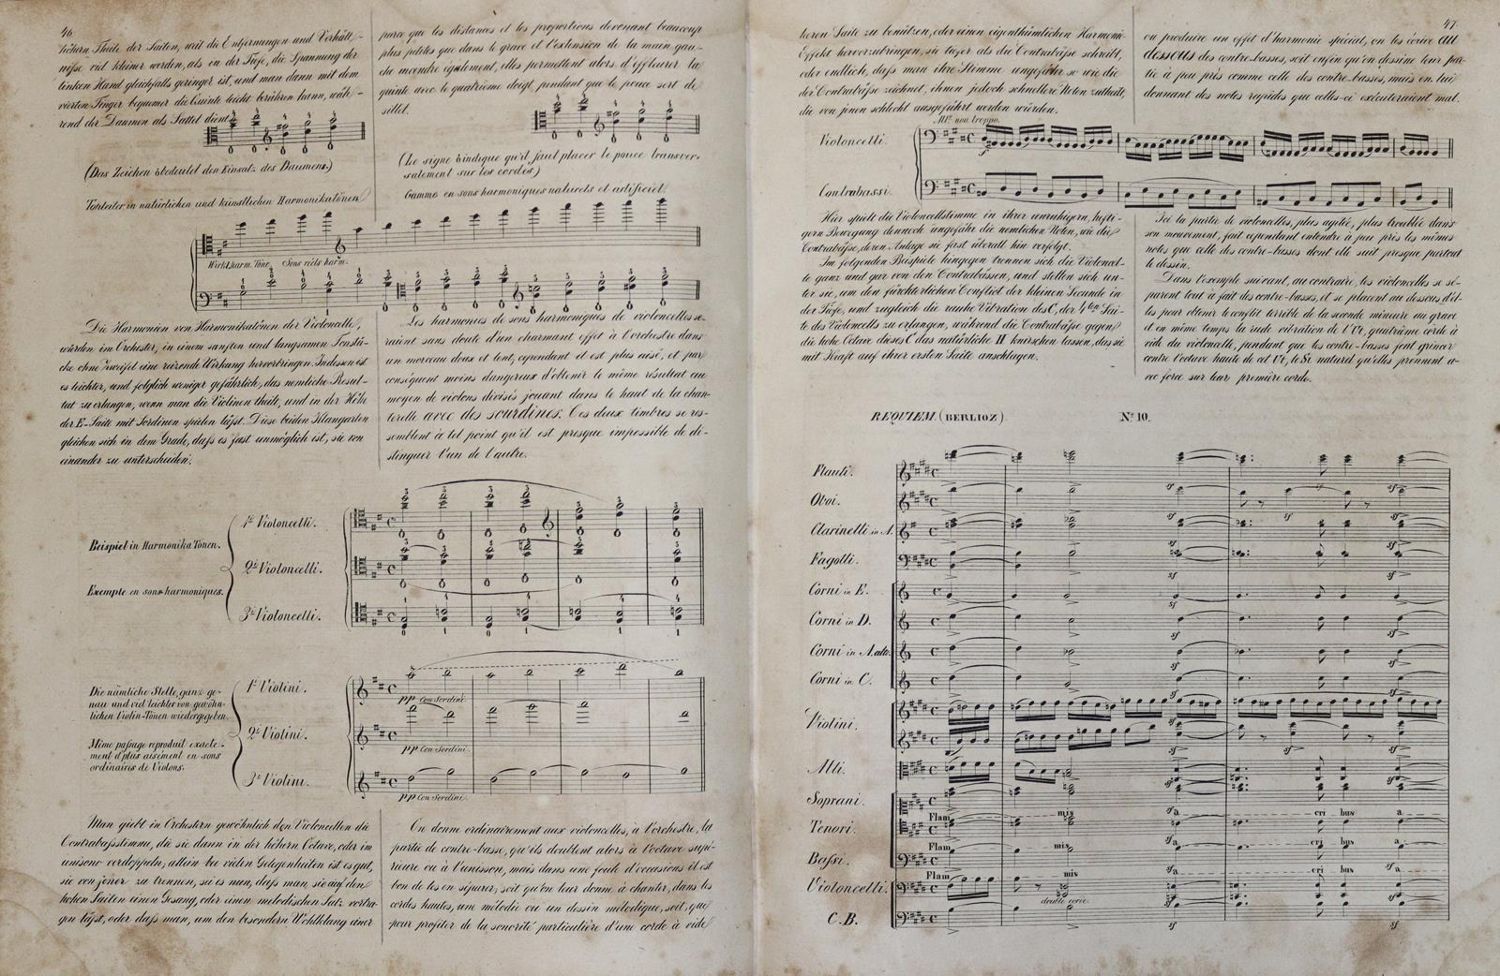 46
höhern Theile der Saiten, weil die Entfernungen und Verhält-
nisse viel kleiner werden, als in der Tiefe, die Spannung der
linken Hand gleichfalls geringer ist, und man dann mit dem
vierten Finger bequemer die Quinte leicht berühren kann, wäh-
rend der Daumen als Sattel dient.
(Das Zeichen bedeutet den Einsatz des Daumens.)
Tonleiter in natürlichen und künstlichen Harmonikatönen.
parce que les distances et les proportions devenant beaucoup
plus petites que dans le grave et l'extension de la main gau-
che moindre également, elles permettent alors d'effleurer la
quinte avec le quatrième doigt, pendant que le pouce sert de
sillet.
(Le signe indique qu'il faut placer le pouce transver-
salement sur les cordes)
Gamme en sons harmoniques naturels et artificiels.
Wirkl. harm. Töne. Sons réels harm.
Die Harmonien von Harmonikatönen der Violoncelle,
würden im Orchester, in einem sanften und langsamen Tonstü-
cke ohne Zweifel eine reizende Wirkung hervorbringen. Indessen ist
es leichter, und folglich weniger gefährlich, das nemliche Resul-
tat zu erlangen, wenn man die Violinen theilt, und in der Höhe
der E-Saite mit Sordinen spielen lässt. Diese beiden Klangarten
gleichen sich in dem Grade, dass es fast unmöglich ist, sie von
einander zu unterscheiden.
Les harmonies de sons harmoniques de violoncelles se-
raient sans doute d'un charmant effet à l'orchestre dans
un morceau doux et lent, cependant il est plus aisé, et par
conséquent moins dangereux d'obtenir le même résultat au
moyen de violons divisés jouant dans le haut de la chan-
terelle avec des sourdines. Ces deux timbres se res-
semblent à tel point qu'il est presque impossible de di-
stinguer l'un de l'autre.
1e Violoncelli.
Beispiel in Harmonika Tönen.
2e Violoncelli.
Exemple en sons harmoniques.
3e Violoncelli.
Die nämliche Stelle, ganz ge-
nau und viel leichter von gewöhn-
lichen Violin-Tönen wiedergegeben.
Même passage reproduit exacte-
ment et plus aisément en sons
ordinaires de Violons.
1e Violini.
pp Con Sordini.
2e Violini.
pp Con Sordini.
3e Violini.
pp Con Sordini.
Man giebt in Orchestern gewöhnlich den Violoncellen die
Contrabassstimme, die sie dann in der höhern Octave, oder im
unisono verdoppeln, allein bei vielen Gelegenheiten ist es gut,
sie von jener zu trennen, sei es nun, dass man sie auf den
hohen Saiten einen Gesang, oder einen melodischen Satz vortra-
gen lässt, oder dass man, um den besondern Wohlklang einer
On donne ordinairement aux violoncelles, à l'orchestre, la
partie de contre-basse, qu'ils doublent alors à l'octave supé-
rieure ou à l'unisson, mais dans une foule d'occasions il est
bon de les en séparer; soit qu'on leur donne à chanter, dans les
cordes hautes, une mélodie ou un dessin mélodique, soit, que
pour profiter de la sonorité particulière d'une corde à vide
47
leeren Saite zu benützen, oder einen eigenthümlichen Harmonie-
Effekt hervorzubringen, sie tiefer als die Contrabässe schreibt,
oder endlich, dass man ihre Stimme ungefähr so wie die
der Contrabässe zeichnet, ihnen jedoch schnellere Noten zutheilt,
die von jenen schlecht ausgeführt werden würden.
ou produire un effet d'harmonie spécial, on les écrive au
dessous des contre-basses, soit enfin qu'on dessine leur par-
tie à peu près comme celle des contre-basses, mais en lui
donnant des notes rapides que celles-ci exécuteraient mal.
All°. non troppo.
Violoncelli.
Contrabassi.
Hier spielt die Violoncellstimme in ihrer unruhigern, hefti-
gern Bewegung dennoch ungefähr die nemlichen Noten, wie die
Contrabässe, deren Anlage sie fast überall hin verfolgt.
Im folgenden Beispiele hingegen trennen sich die Violoncel-
le ganz und gar von den Contrabässen, und stellen sich un-
ter sie, um den fürchterlichen Conflict der kleinen Secunde in
der Tiefe, und zugleich die rauhe Vibration des C, der 4ten Sai-
te des Violoncells zu erlangen, während die Contrabässe gegen
die hohe Octave dieses C das natürliche H knirschen lassen, das sie
mit Kraft auf ihrer ersten Saite anschlagen.
Ici la partie de violoncelles, plus agitée, plus troublée dans
son mouvement, fait cependant entendre à peu près les mêmes
notes que celle des contre-basses dont elle suit presque partout
le dessin.
Dans l'exemple suivant, au contraire, les violoncelles se sé-
parent tout à fait des contre-basses, et se placent au dessous d'el-
les pour obtenir le conflit terrible de la seconde mineure au grave
et en même temps la rude vibration de l'Ut, quatrième corde à
vide du violoncelle, pendant que les contre-basses font grincer
contre l'octave haute de cet Ut, le Si naturel qu'elles prennent a-
vec force sur leur première corde.
REQUIEM (BERLIOZ) N° 10.
Flauti.
Oboi.
Clarinetti in A.
Fagotti.
Corni in E.
Corni in D.
Corni in A. alto.
Corni in C.
Violini.
Alti.
Soprani.
Flam mis a cri bus a
Tenori.
Flam mis a cri bus a
Bassi.
Flam mis a cri bus a
Violoncelli.
double corde.
C. B.